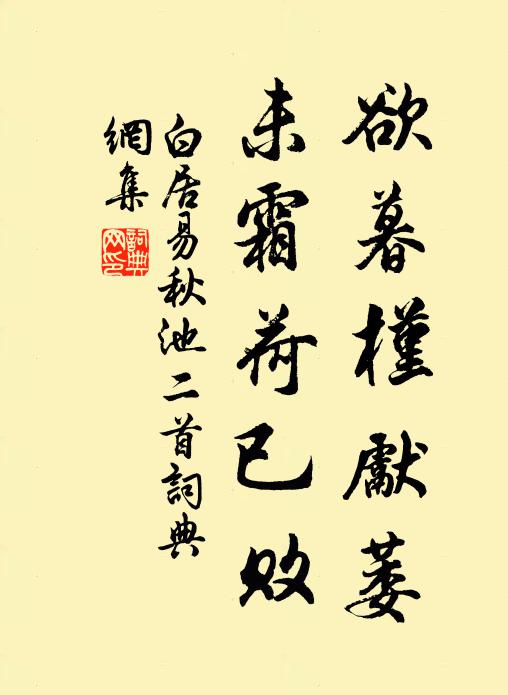 欲暮槿獻萎
未霜荷已敗
白居易秋池二首詞典
網集
詞典
网印